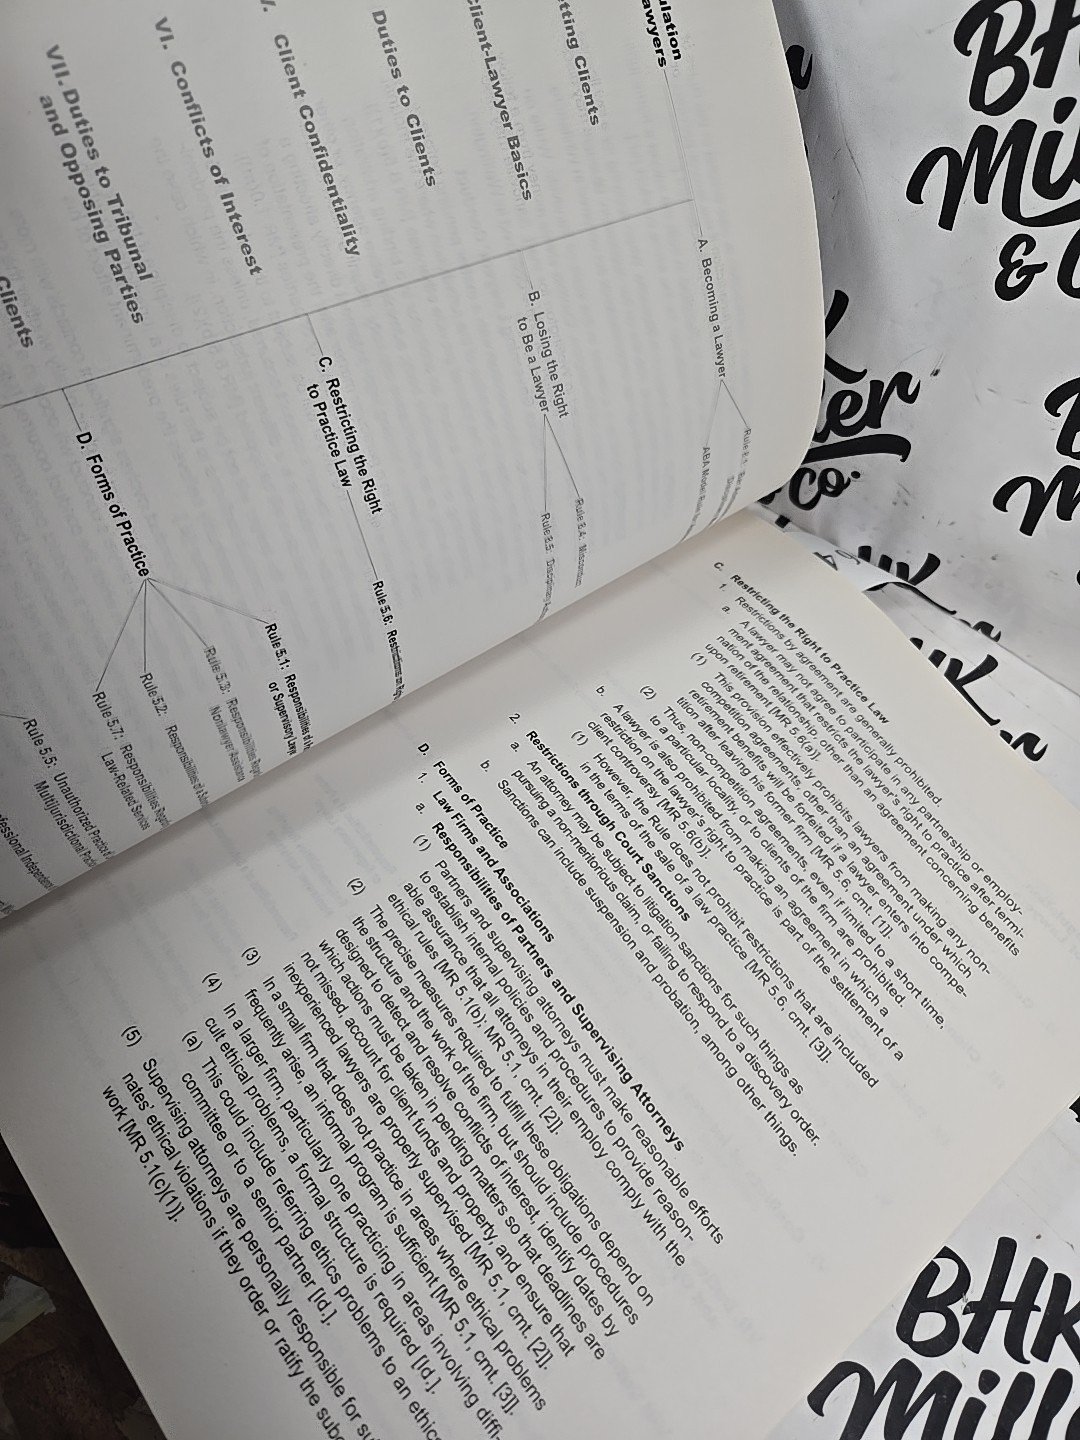 ulation
awyers
tting Clients
Client-Lawyer Basics
Duties to Clients
Client Confidentiality
VI. Conflicts of Interest
VII. Duties to Tribunal
and Opposing Parties
Clients
A. Becoming a Lawyer
B. Losing the Right
to Be a Lawyer
Rule 8.4: Misconduct
Rule 8.5: Disciplinary
C. Restricting the Right
to Practice Law
Rule 5.6: Restrictions
D. Forms of Practice
Rule 5.1: Responsibilities of
or Supervisory
Rule 5.3: Responsibilities
Nonlawyer
Rule 5.2: Responsibilities
Rule 5.7: Responsibilities
Law-Related Services
Rule 5.5: Unauthorized Practice
Multijurisdictional
C. Restricting the Right to Practice Law
1. Restrictions by agreement are generally prohibited.
a. A lawyer may not agree to participate in any partnership or employ-
ment agreement that restricts the lawyer's right to practice after termi-
nation of the relationship, other than an agreement concerning benefits
upon retirement [MR 5.6(a)].
(1) This provision effectively prohibits lawyers from making any non-
competition agreements, other than an agreement under which
retirement benefits will be forfeited if a lawyer enters into compe-
tition after leaving his former firm [MR 5.6, cmt. [1]].
(2) Thus, non-competition agreements, even if limited to a short time,
to a particular locality, or to clients of the firm are prohibited.
b. A lawyer is also prohibited from making an agreement in which a
restriction on the lawyer's right to practice is part of the settlement of a
client controversy [MR 5.6(b)].
(1) However, the Rule does not prohibit restrictions that are included
in the terms of the sale of a law practice [MR 5.6, cmt. [3]].
2. Restrictions through Court Sanctions
a. An attorney may be subject to litigation sanctions for such things as
pursuing a non-meritorious claim, or failing to respond to a discovery order.
b. Sanctions can include suspension and probation, among other things.
D. Forms of Practice
1. Law Firms and Associations
a. Responsibilities of Partners and Supervising Attorneys
(1) Partners and supervising attorneys must make reasonable efforts
to establish internal policies and procedures to provide reason-
able assurance that all attorneys in their employ comply with the
ethical rules [MR 5.1(b); MR 5.1, cmt. [2]].
(2) The precise measures required to fulfill these obligations depend on
the structure and the work of the firm, but should include procedures
designed to detect and resolve conflicts of interest, identify dates by
which actions must be taken in pending matters so that deadlines are
not missed, account for client funds and property, and ensure that
inexperienced lawyers are properly supervised [MR 5.1, cmt. [2]].
(3) In a small firm that does not practice in areas where ethical problems
frequently arise, an informal program is sufficient [MR 5.1, cmt. [3]].
(4) In a larger firm, particularly one practicing in areas involving diffi-
cult ethical problems, a formal structure is required [Id.].
(a) This could include referring ethics problems to an ethics
committee or to a senior partner [Id.].
(5) Supervising attorneys are personally responsible for su
nates' ethical violations if they order or ratify the subo
work [MR 5.1(c)(1)].
BHK
Miller
& Co.
BHK
Mill